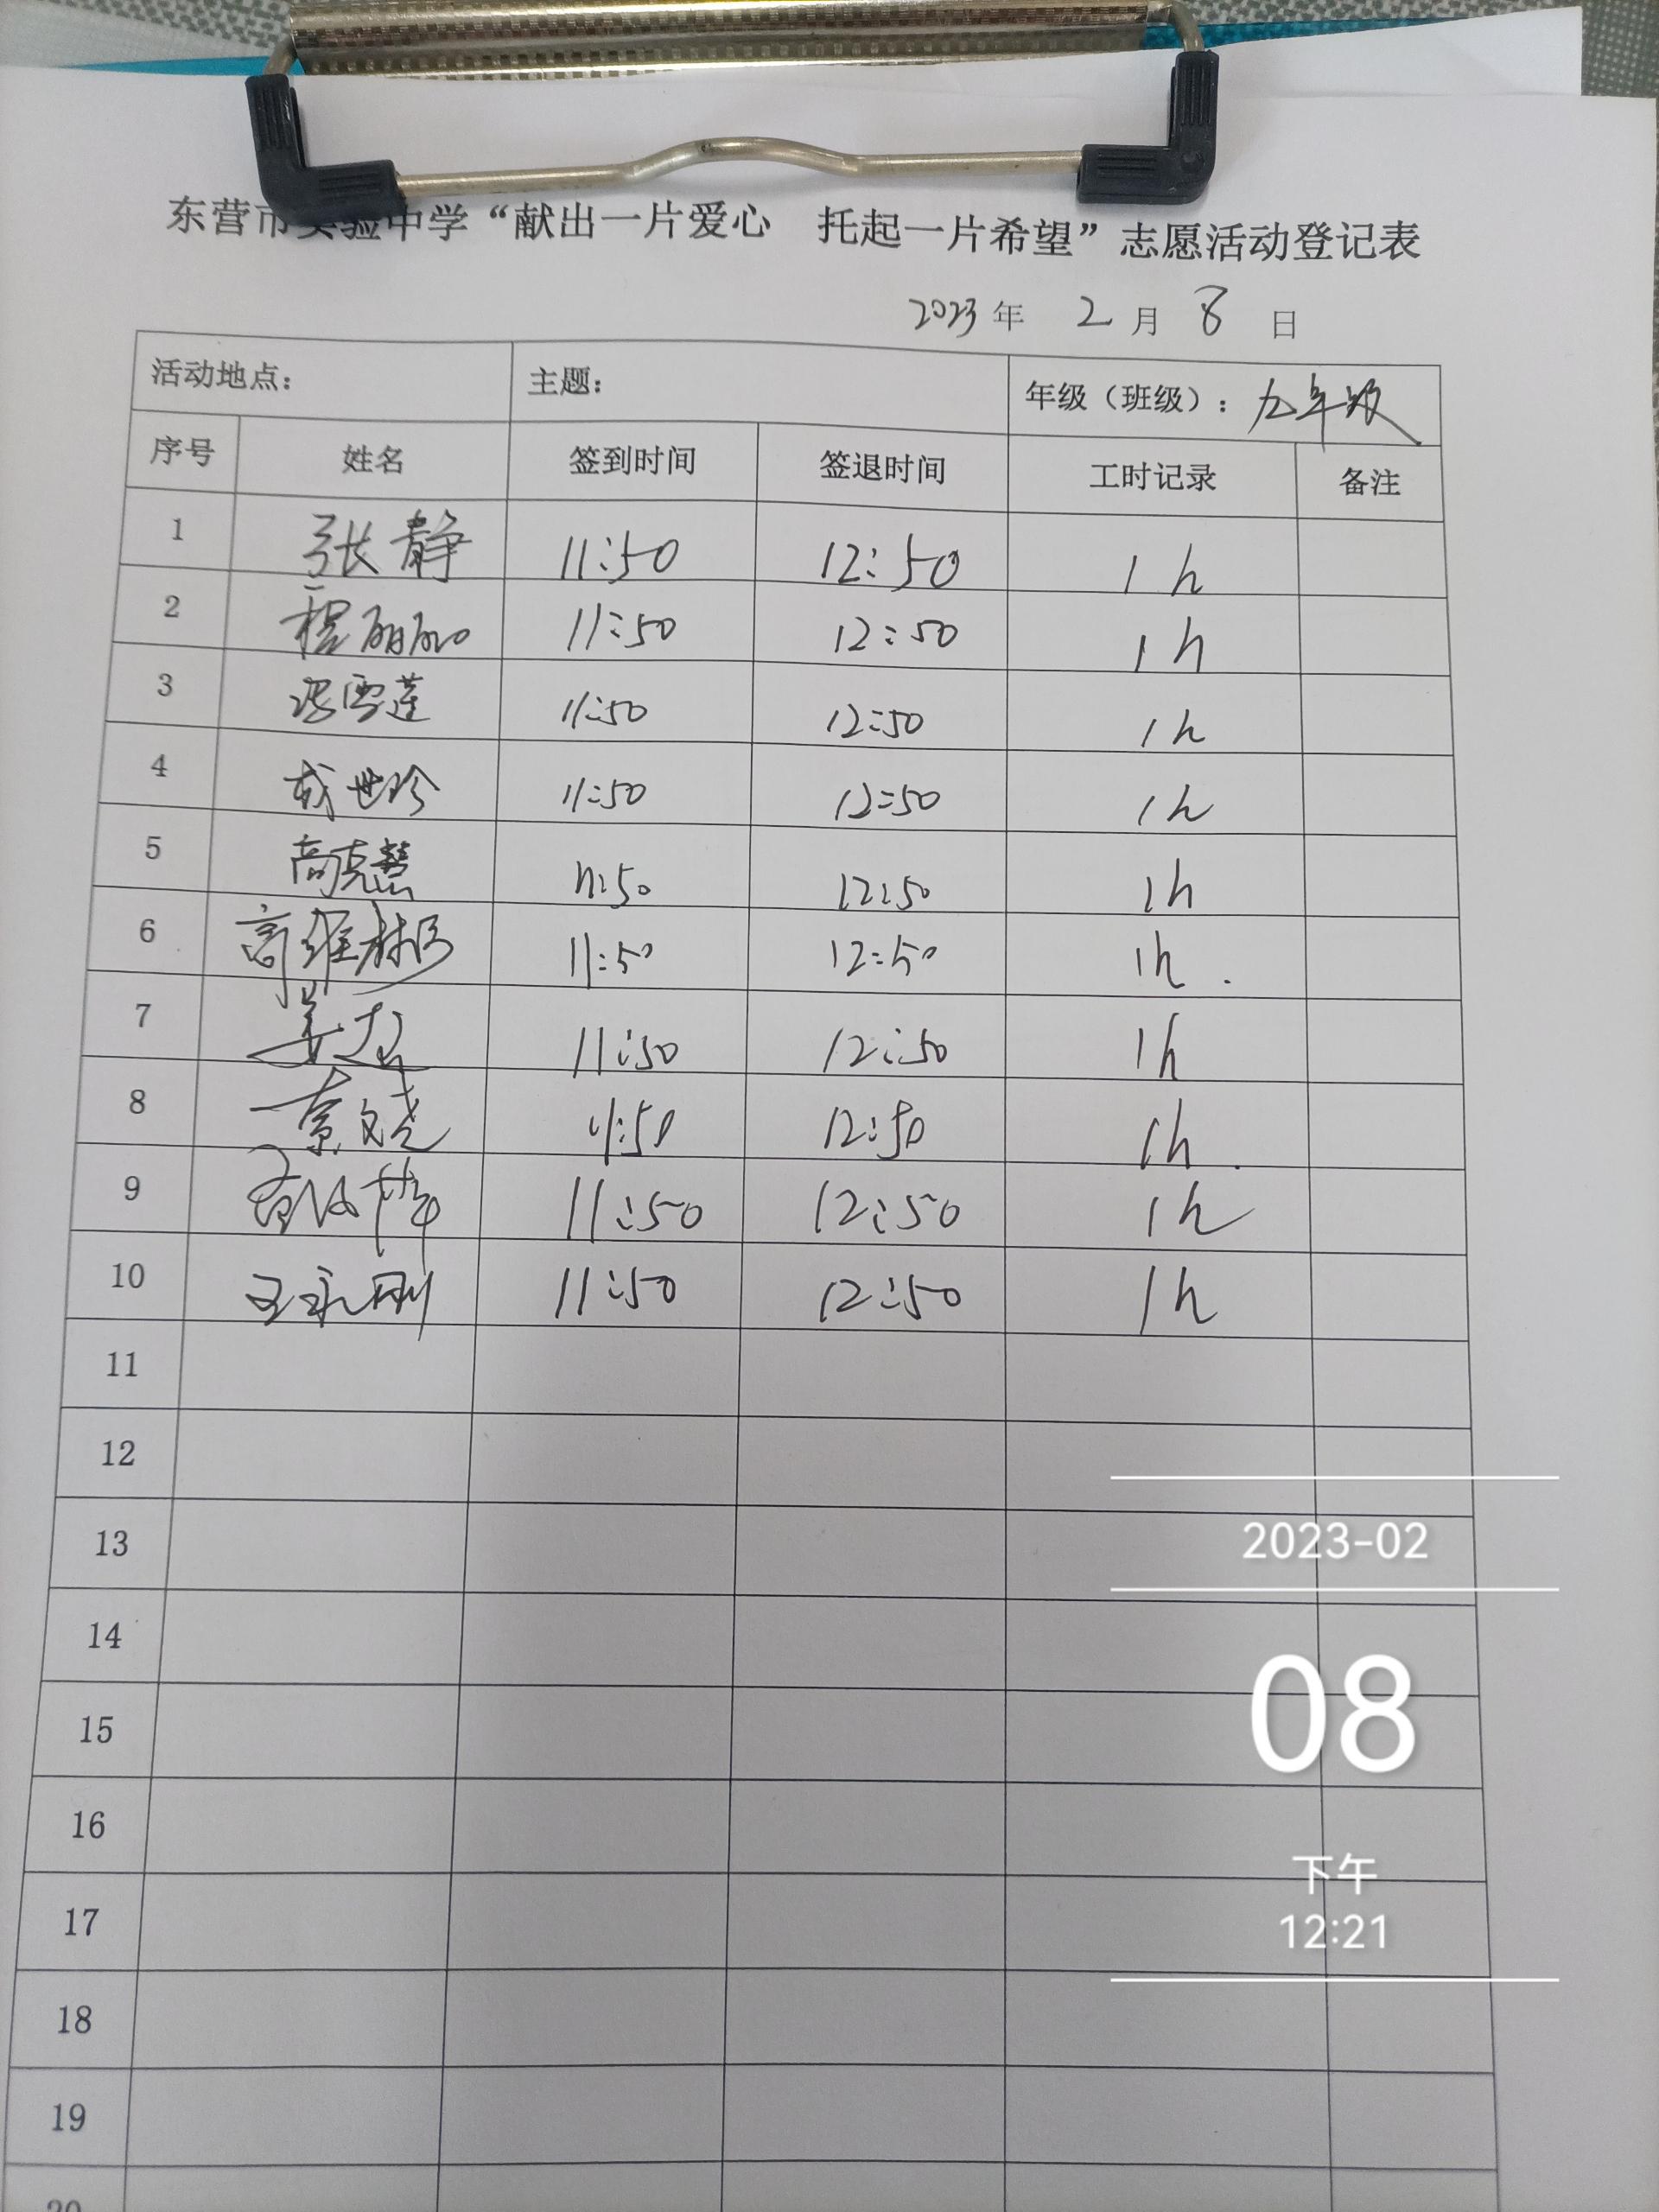 东营市实验中学“献出一片爱心　托起一片希望”志愿活动登记表
2023 年 2 月 8 日
活动地点： 主题： 年级（班级）：九年级
序号 姓名 签到时间 签退时间 工时记录 备注
1 张静 11:50 12:50 1h
2 程丽丽 11:50 12:50 1h
3 雪莲 11:50 12:50 1h
4 成世珍 11:50 12:50 1h
5 高克慧 11:50 12:50 1h
6 高维 11:50 12:50 1h.
7 姜 11:50 12:50 1h
8 文尧 11:50 12:50 1h.
9 11:50 12:50 1h
10 王永刚 11:50 12:50 1h
11
12
13
14
15
16
17
18
19
20
2023-02
08
下午
12:21